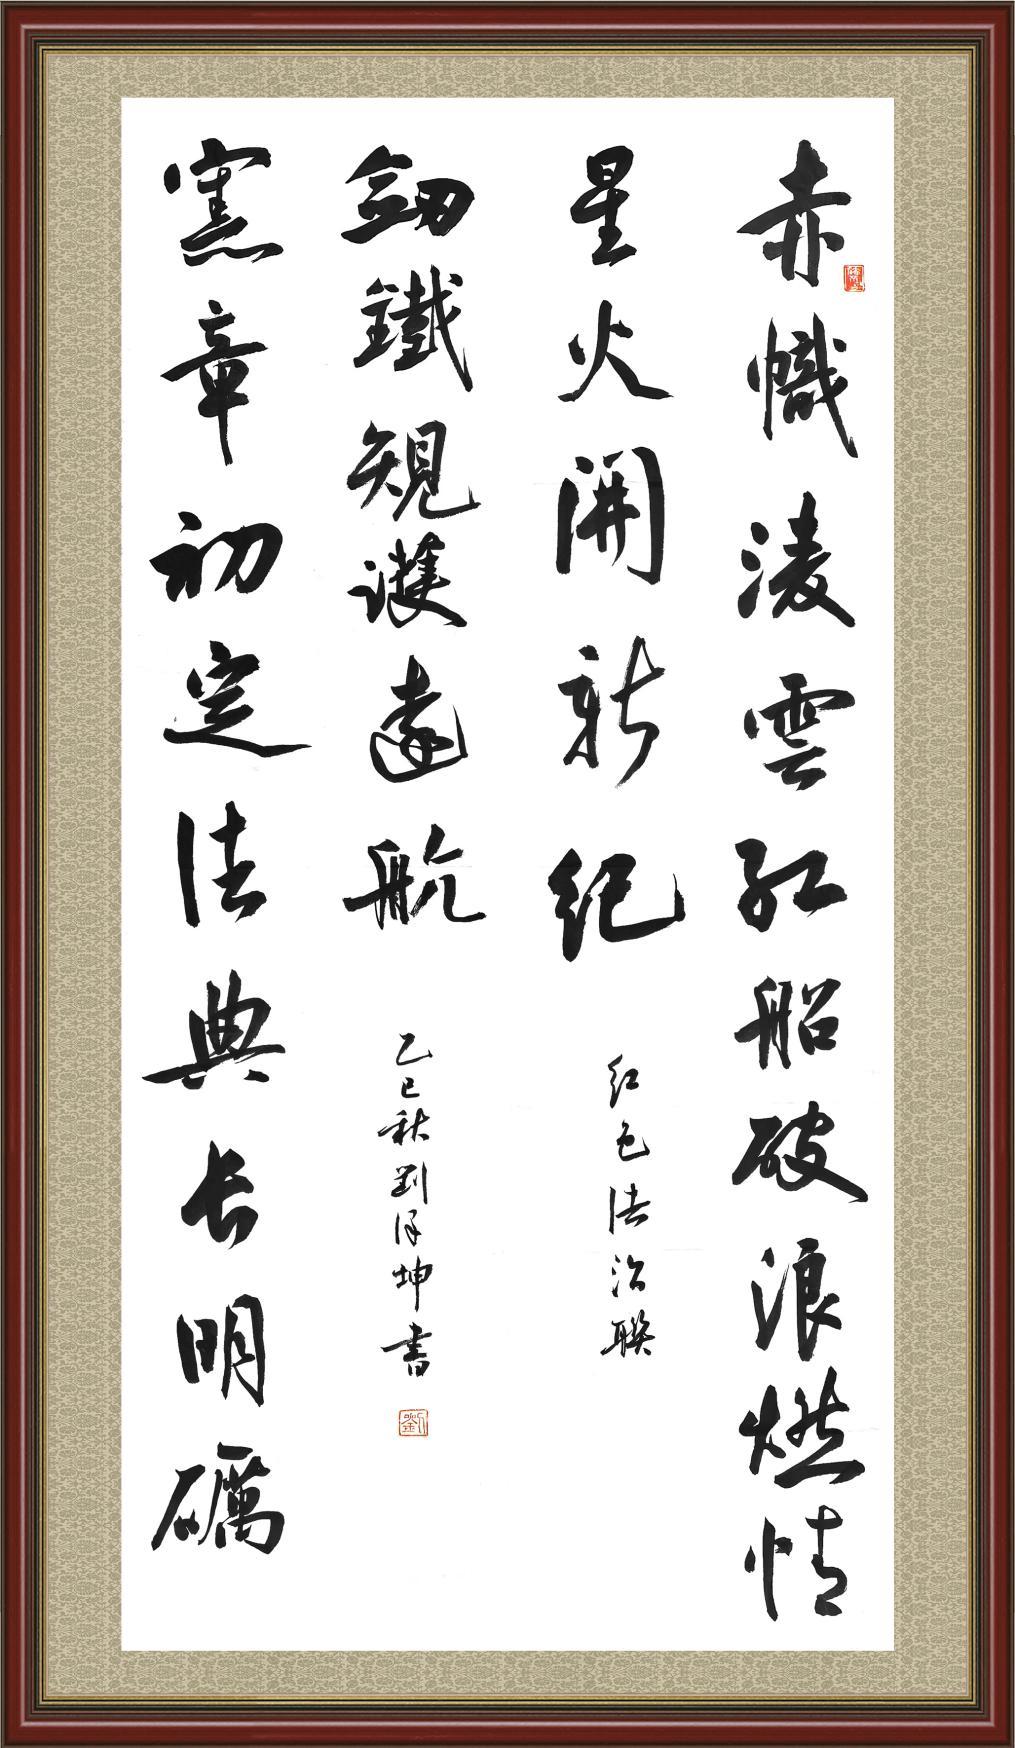 赤幟淩雲紅船破浪燃情
星火開新紀
紅色法治聯
憲章初定法典长明礪
劍鐵規護遠航
乙巳秋劉泽坤書
劉